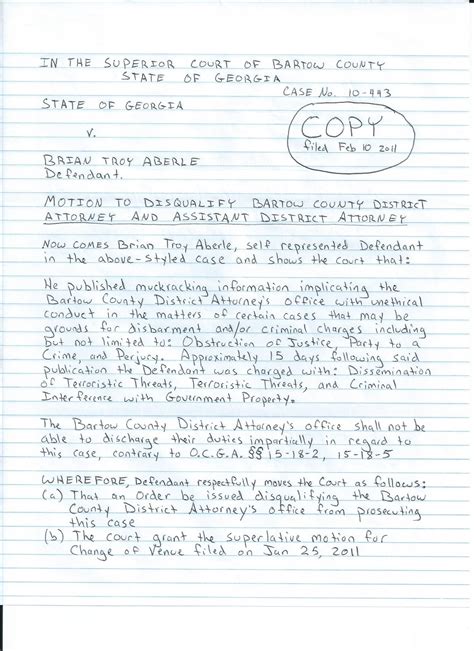 IN THE SUPERIOR COURT OF BARTOW COUNTY
STATE OF GEORGIA
CASE No. 10-993
STATE OF GEORGIA
v.
COPY
filed Feb 10 2011
BRIAN TROY ABERLE
Defendant.
MOTION TO DISQUALIFY BARTOW COUNTY DISTRICT
ATTORNEY AND ASSISTANT DISTRICT ATTORNEY
NOW COMES Brian Troy Aberle, self represented Defendant
in the above-styled case and shows the court that:
He published muckracking information implicating the
Bartow County District Attorney's office with unethical
conduct in the matters of certain cases that may be
grounds for disbarment and/or criminal charges including
but not limited to: Obstruction of Justice, Party to a
Crime, and Perjury. Approximately 15 days following said
publication the Defendant was charged with: Dissemination
of Terroristic Threats, Terroristic Threats, and Criminal
Interference with Government Property.
The Bartow County District Attorney's office shall not be
able to discharge their duties impartially in regard to
this case, contrary to O.C.G.A. §§ 15-18-2, 15-18-5
WHEREFORE, Defendant respectfully moves the Court as follows:
(a) That an Order be issued disqualifying the Bartow
County District Attorney's office from prosecuting
this case
(b) The court grant the superlative motion for
Change of Venue filed on Jan 25, 2011